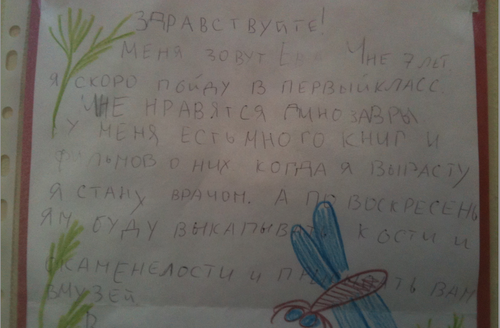 ЗДРАВСТВУЙТЕ!
МЕНЯ ЗОВУТ МНЕ 7 ЛЕТ
Я СКОРО ПОЙДУ В ПЕРВЫЙ КЛАСС.
МНЕ НРАВЯТСЯ ДИНОЗАВРЫ
У МЕНЯ ЕСТЬ МНОГО КНИГ И
ФИЛЬМОВ О НИХ КОГДА Я ВЫРАСТУ
Я СТАНУ ВРАЧОМ. А ПО ВОСКРЕСЕНЬ
ЯМ БУДУ ВЫКАПЫВАТЬ КОСТИ И
ОКАМЕНЕЛОСТИ И ВАМ
В МУЗЕЙ.